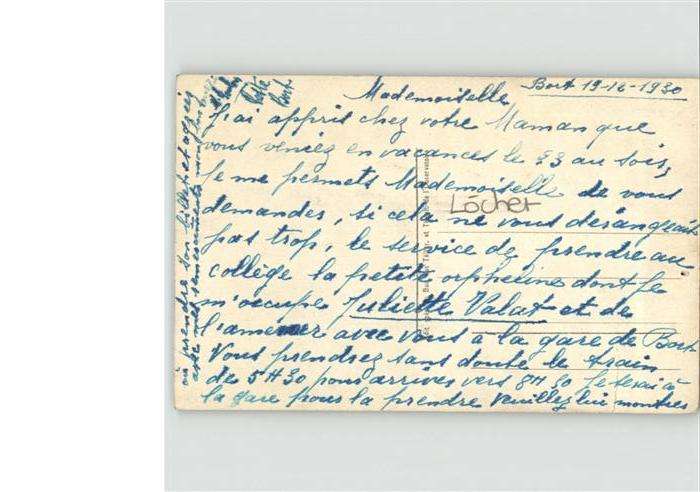 Bort 19-12-1930
Mademoiselle
J'ai appris chez votre Maman que
vous veniez en vacances le 23 au soir,
Je me permets Mademoiselle de vous
demander, si cela ne vous dérangeait
Löcher
pas trop, le service de prendre au
collège la petite orpheline dont je
m'occupe Juliette Valat et de
l'amener avec vous à la gare de Bort
Vous prendrez sans doute le train
de 5H30 pour arriver vers 8H30 Je serai à
la gare pour la prendre Veuillez lui montrer
où prendre son billet et agréez